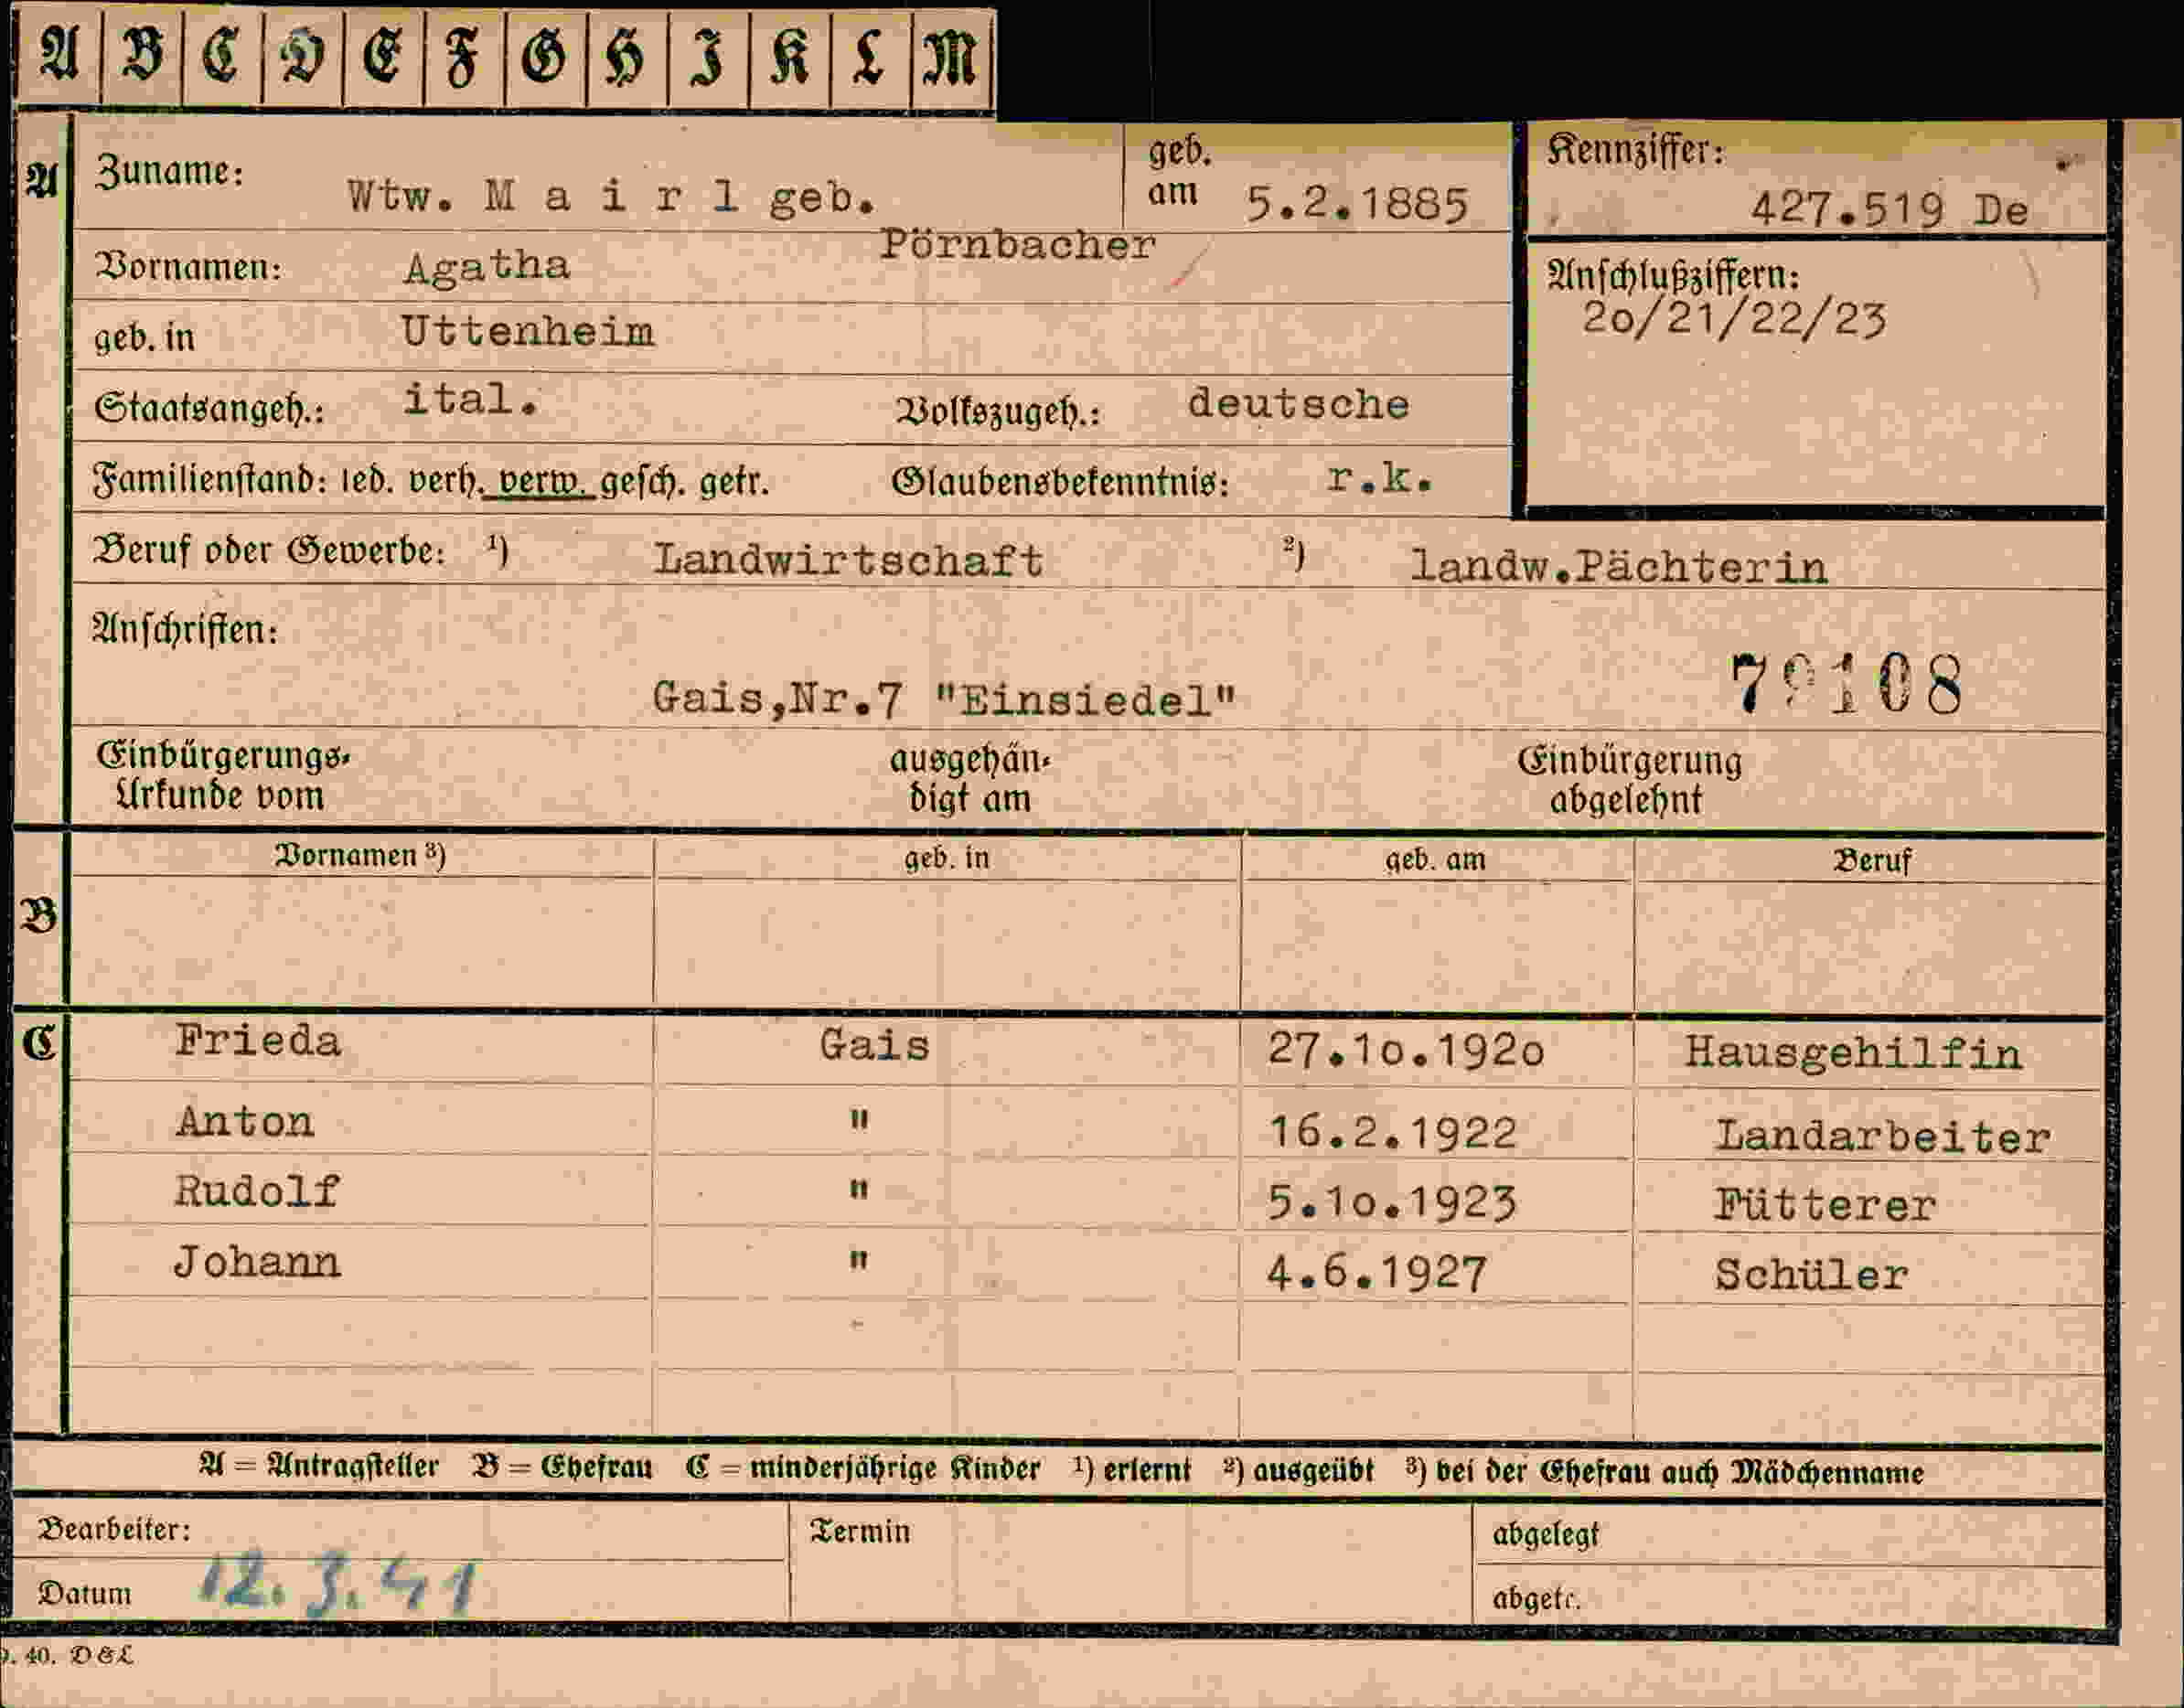 A B C D E F G H I K L M
A Zuname: Wtw. M a i r l geb. Pörnbacher geb. am 5.2.1885 Kennziffer: 427.519 De
Vornamen: Agatha
Anschlußziffern: 2o/21/22/23
geb. in Uttenheim
Staatsangeh.: ital. Volkszugeh.: deutsche
Familienstand: led. verh. verw. gesch. getr. Glaubensbekenntnis: r.k.
Beruf oder Gewerbe: ¹) Landwirtschaft ²) landw.Pächterin
Anschriften:
Gais,Nr.7 "Einsiedel" 79108
Einbürgerungs- ausgehän- Einbürgerung
Urkunde vom digt am abgelehnt
Vornamen ³) geb. in geb. am Beruf
B
C Frieda Gais 27.1o.192o Hausgehilfin
Anton " 16.2.1922 Landarbeiter
Rudolf " 5.1o.1923 Fütterer
Johann " 4.6.1927 Schüler
A = Antragsteller B = Ehefrau C = minderjährige Kinder ¹) erlernt ²) ausgeübt ³) bei der Ehefrau auch Mädchenname
Bearbeiter: Termin abgelegt
Datum 12.3.41 abgetr.
. 40. D & L